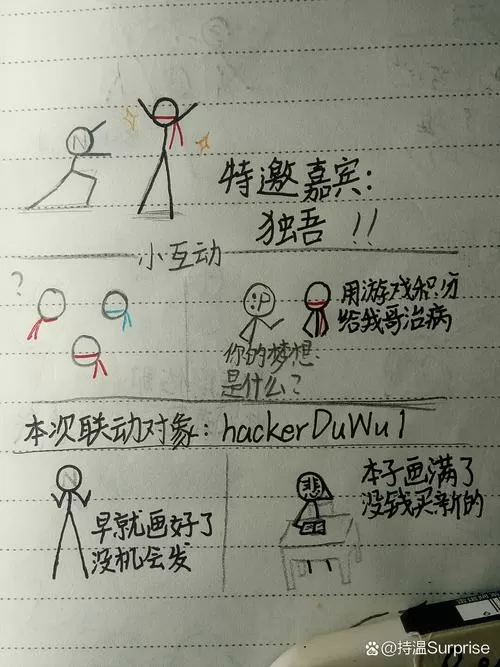 N
特邀嘉宾:
独吾 !!
小互动
?
:P
用游戏积分
给我哥治病
你的梦想
是什么?
本次联动对象: hackerDuWu1
N
早就画好了
没机会发
悲
本子画满了
没钱买新的
@持温Surprise